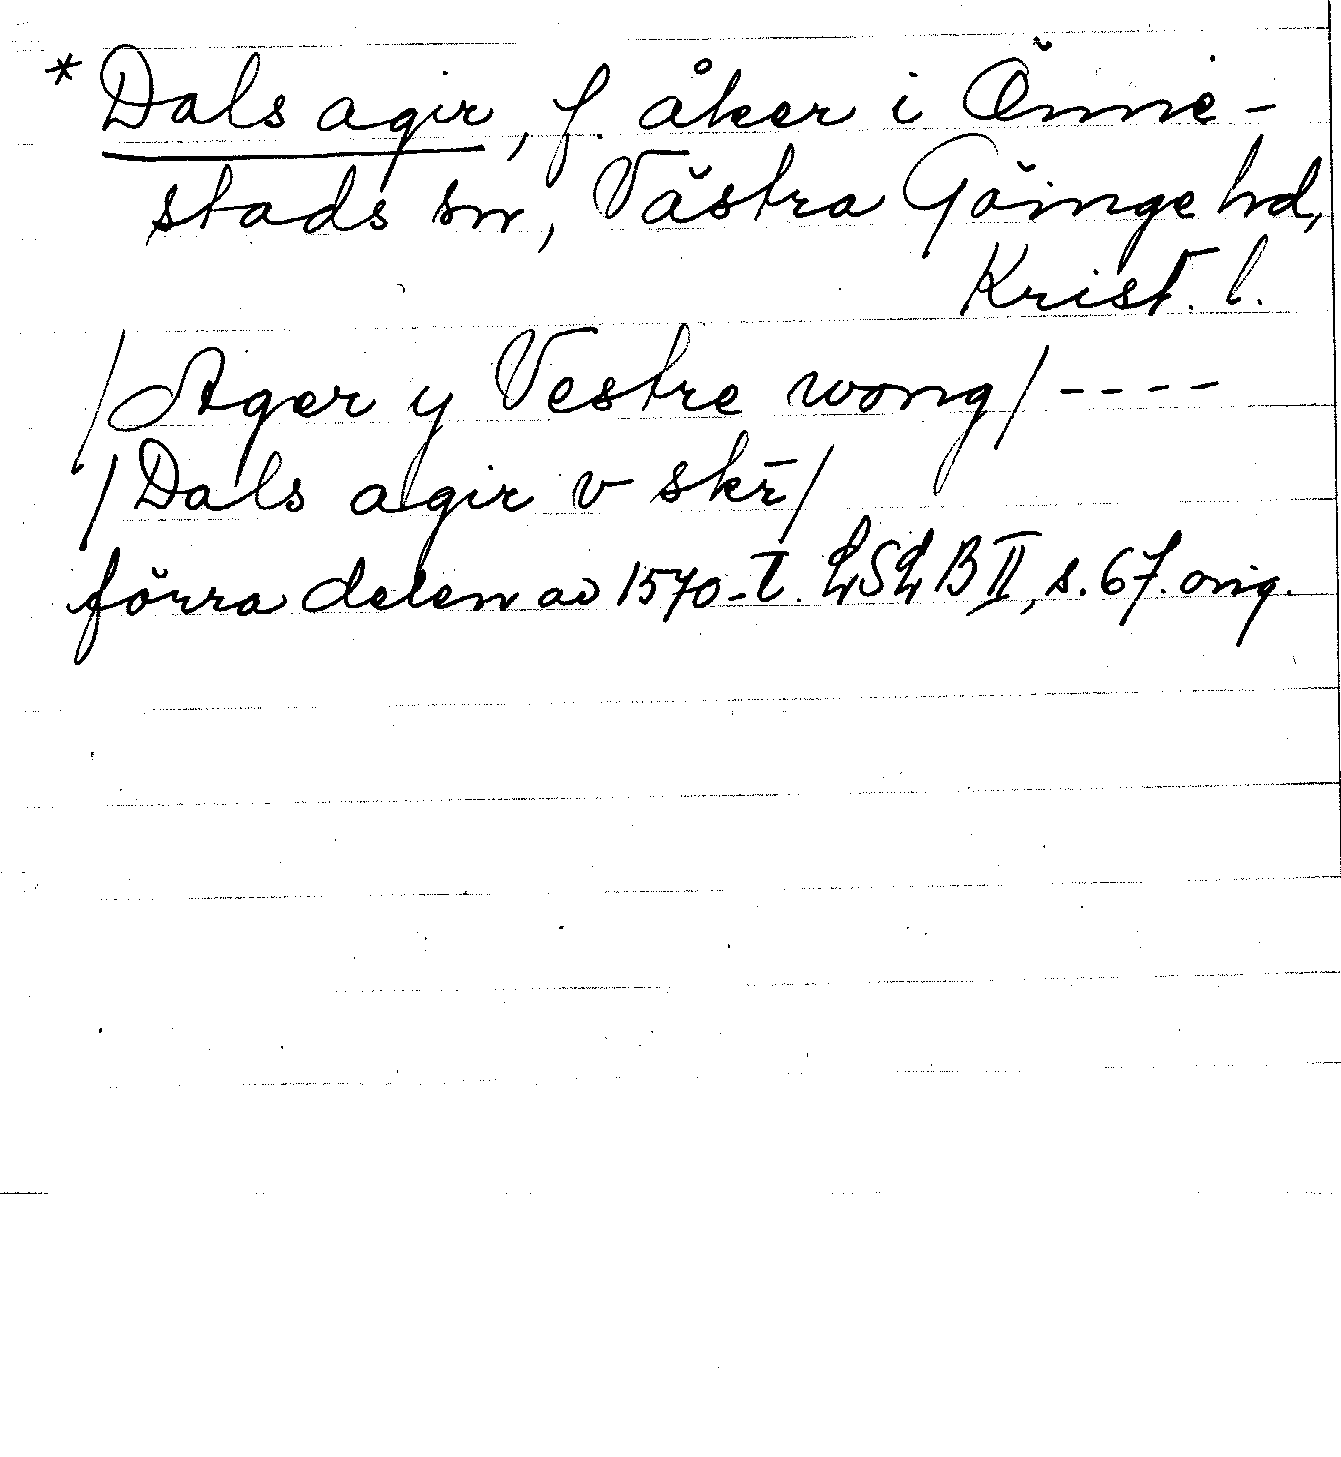 * Dals agir, f. åker i Önne-
stads sn, Västra Göinge hd,
Krist. l.
/Ager y Vestre wong/ ----
/Dals agir v skr̄/
förra delen av 1570-t. LSL B II, s. 67. orig.